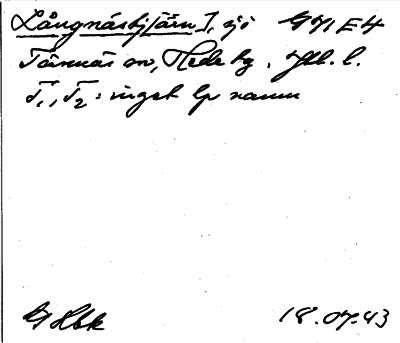 Långnästjärn I, sjö G 71 E4
Tännäs sn, Hede tg. Jtl. l.
T₁, T₂: inget lp namn
18.07.43